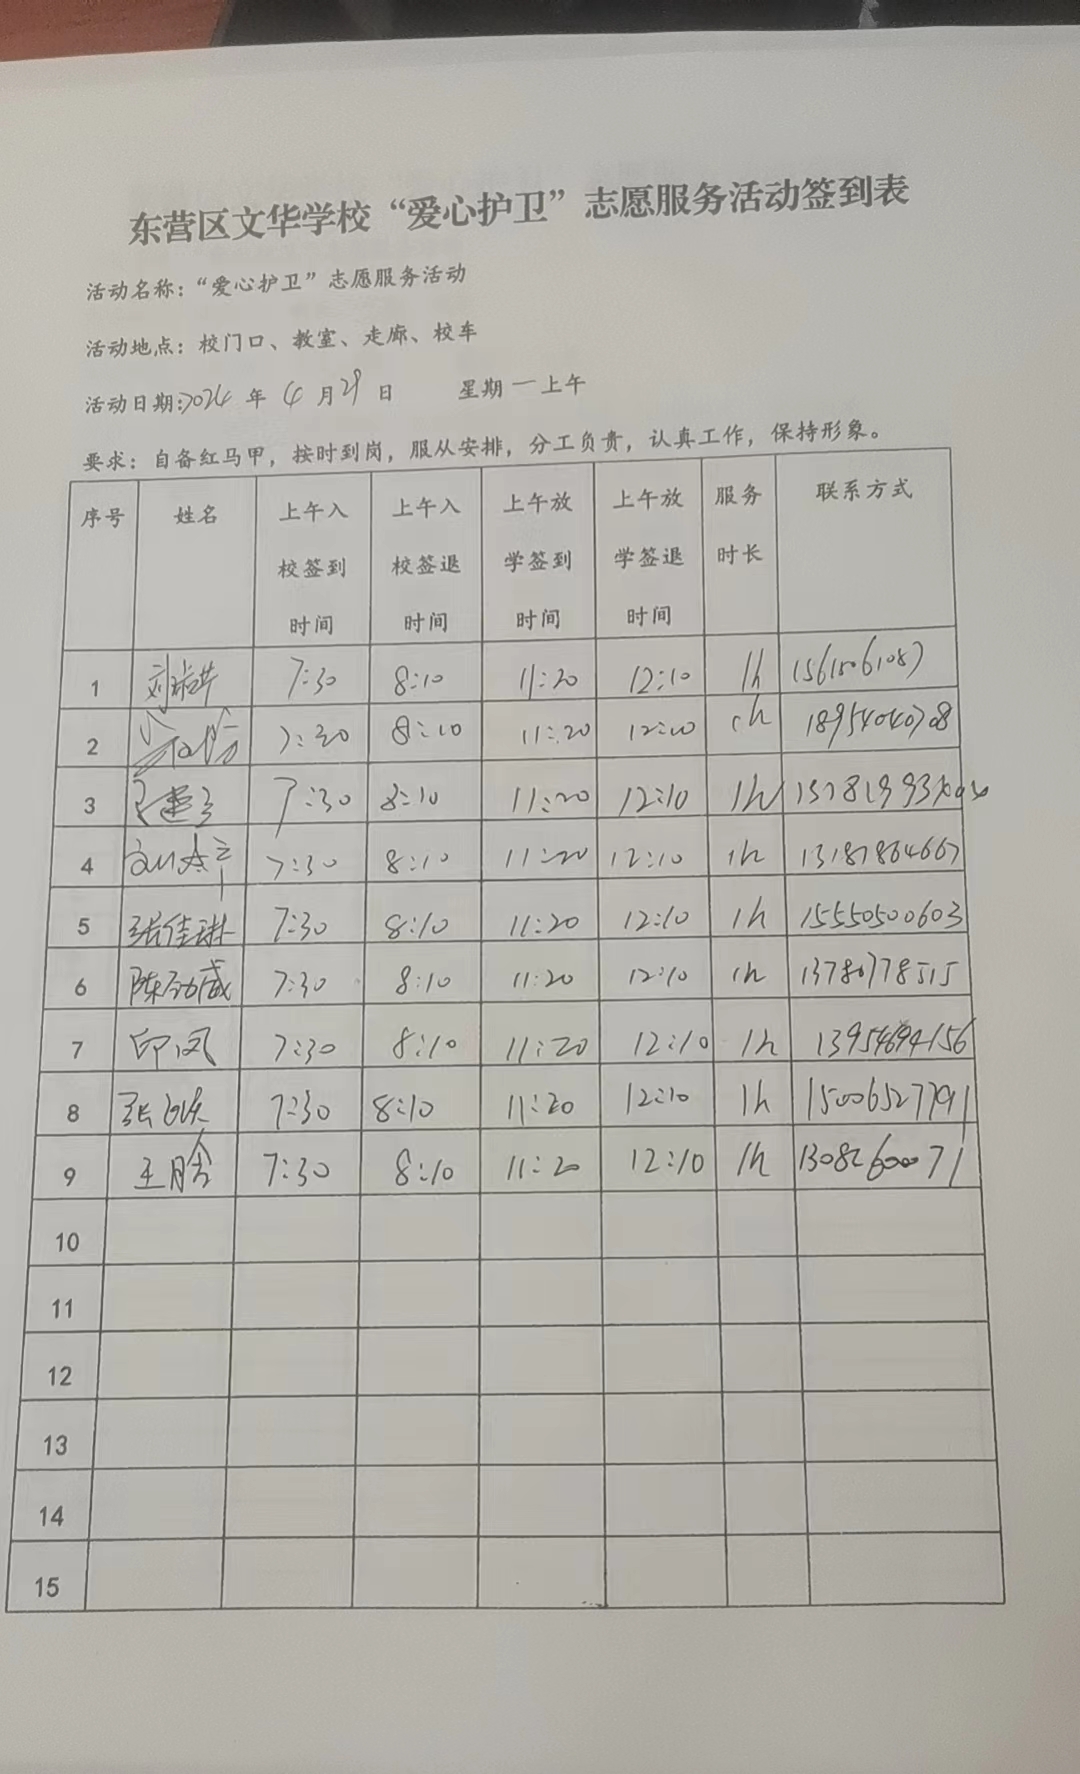 东营区文华学校“爱心护卫”志愿服务活动签到表
活动名称：“爱心护卫”志愿服务活动
活动地点：校门口、教室、走廊、校车
活动日期:2024 年 4 月 29 日 星期一上午
要求：自备红马甲，按时到岗，服从安排，分工负责，认真工作，保持形象。
序号 姓名 上午入校签到时间 上午入校签退时间 上午放学签到时间 上午放学签退时间 服务时长 联系方式
1 7:30 8:10 11:20 12:10 1h 15615061087
2 7:30 8:10 11:20 12:10 1h 18954040708
3 7:30 8:10 11:20 12:10 1h
4 7:30 8:10 11:20 12:10 1h 13181864667
5 张佳琳 7:30 8:10 11:20 12:10 1h 15550500603
6 陈劲威 7:30 8:10 11:20 12:10 1h 13780778515
7 印凤 7:30 8:10 11:20 12:10 1h 13954694156
8 7:30 8:10 11:20 12:10 1h 15006527791
9 7:30 8:10 11:20 12:10 1h
10
11
12
13
14
15